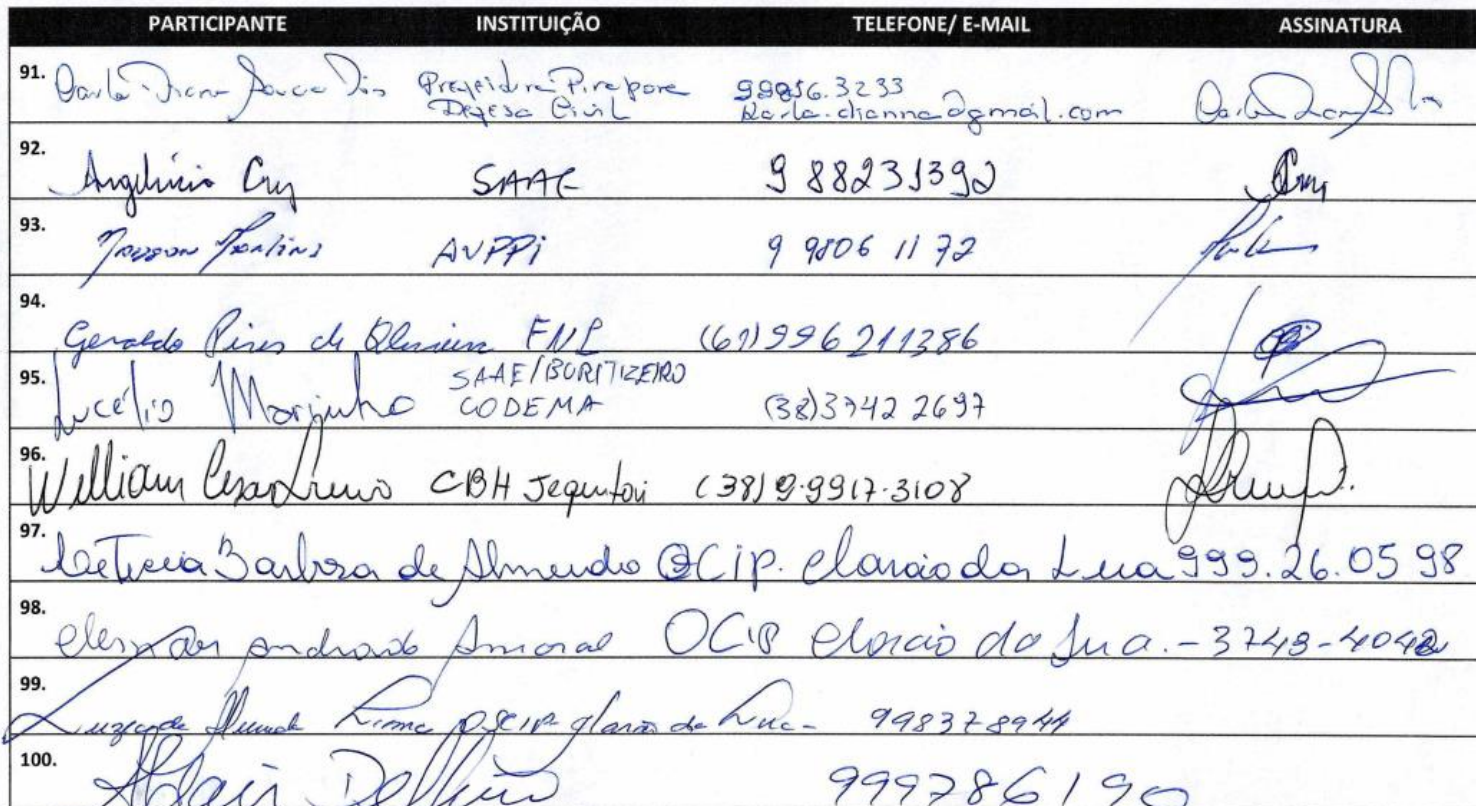 PARTICIPANTE INSTITUIÇÃO TELEFONE/ E-MAIL ASSINATURA
91. Prefeitura Pirapora
Defesa Civil
99856.3233
Karla.dianna@gmail.com
92. Angelinio Cruz SAAE 9 88231392 Cruz
93. Martins AVPPi 9 9806 1172
94. Geraldo Pires de Oliveira FNL (61)996211386
95. Lucélio Marinho SAAE/BURITIZEIRO
CODEMA (38)3742 2697
96. William Cesar CBH Jequitaí (38)9.9917-3108
97. Leticia Barboza de Almeida OCIP. Clarão da Lua 999.26.05 98
98. Andrade Amaral OCIP Clarão da Lua. - 3743-4042
99. Lima OSCIP Clarão da Lua - 998378944
100. Adair 999786190